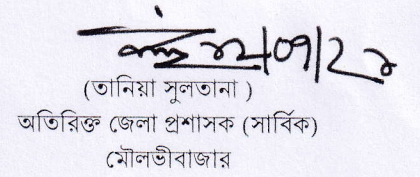 (তানিয়া সুলতানা )
অতিরিক্ত জেলা প্রশাসক (সার্বিক)
মৌলভীবাজার